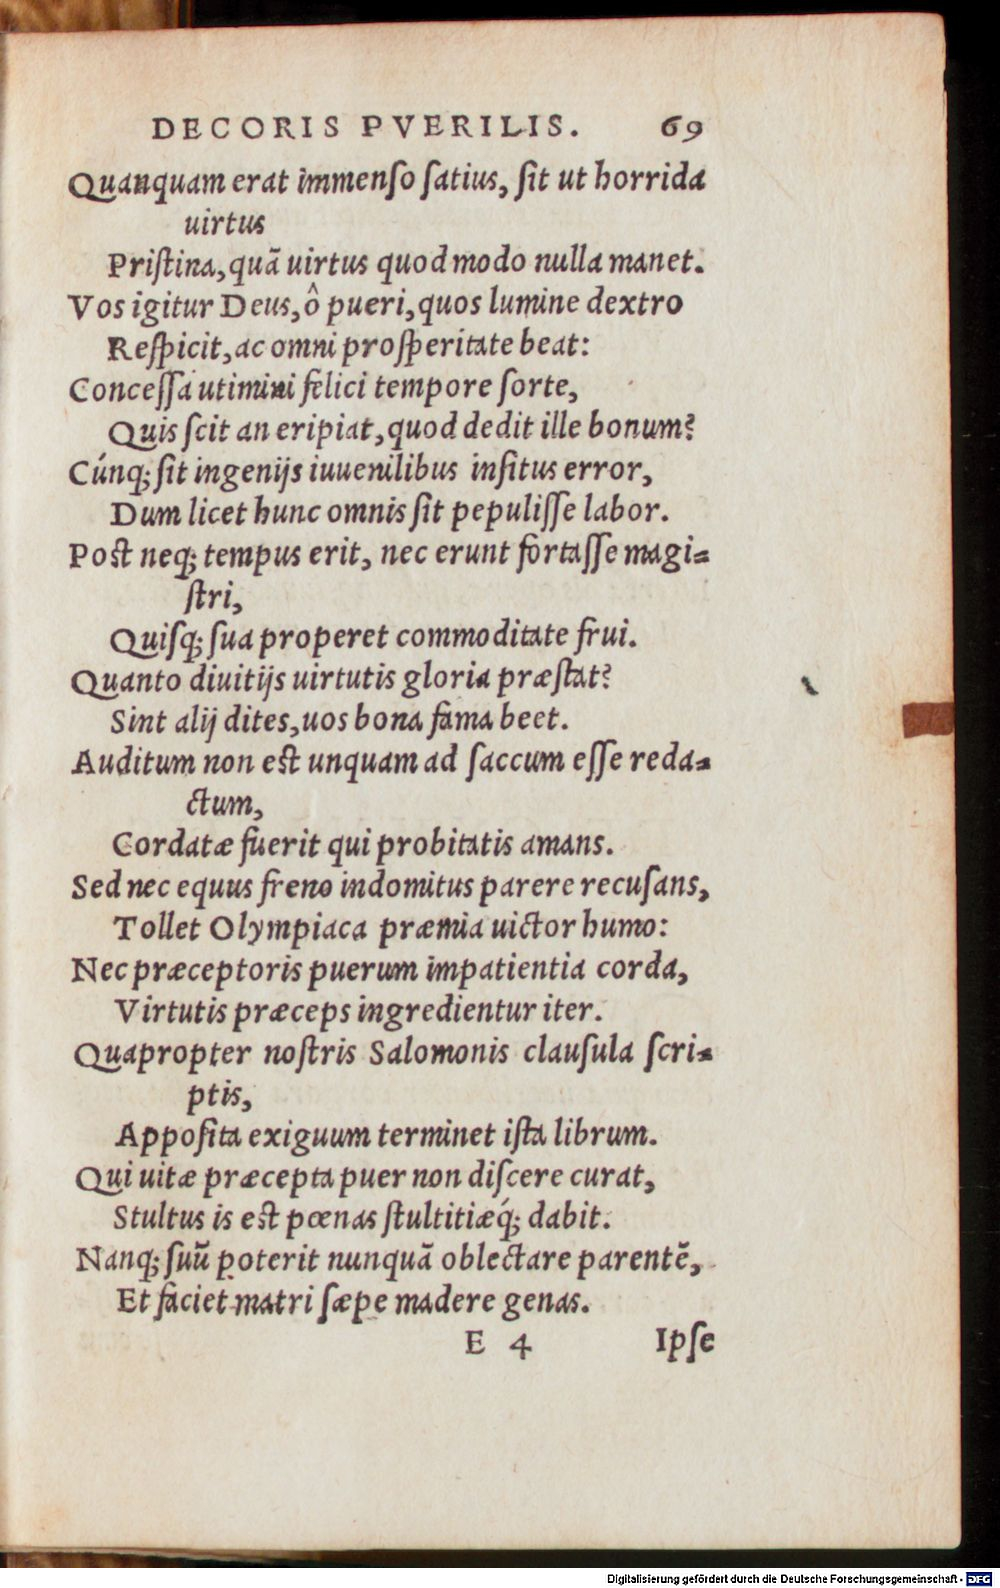 DECORIS PVERILIS. 69
Quanquam erat immenſo ſatius, ſit ut horrida
uirtus
Priſtina, quã uirtus quod modo nulla manet.
Vos igitur Deus, ô pueri, quos lumine dextro
Reſpicit, ac omni proſperitate beat:
Conceſſa utimini felici tempore ſorte,
Quis ſcit an eripiat, quod dedit ille bonum?
Cúnq; ſit ingenijs iuuenilibus inſitus error,
Dum licet hunc omnis ſit pepuliſſe labor.
Poſt neq; tempus erit, nec erunt fortaſſe magi-
ſtri,
Quiſq; ſua properet commoditate frui.
Quanto diuitijs uirtutis gloria præſtat?
Sint alij dites, uos bona fama beet.
Auditum non eſt unquam ad ſaccum eſſe reda-
ctum,
Cordatæ fuerit qui probitatis amans.
Sed nec equus freno indomitus parere recuſans,
Tollet Olympiaca præmia uictor humo:
Nec præceptoris puerum impatientia corda,
Virtutis præceps ingredientur iter.
Quapropter noſtris Salomonis clauſula ſcri-
ptis,
Appoſita exiguum terminet iſta librum.
Qui uitæ præcepta puer non diſcere curat,
Stultus is eſt pœnas ſtultitiæq́; dabit.
Nanq; ſuũ poterit nunquã oblectare parentẽ,
Et faciet matri ſæpe madere genas.
E 4 Ipſe
Digitalisierung gefördert durch die Deutsche Forschungsgemeinschaft - DFG